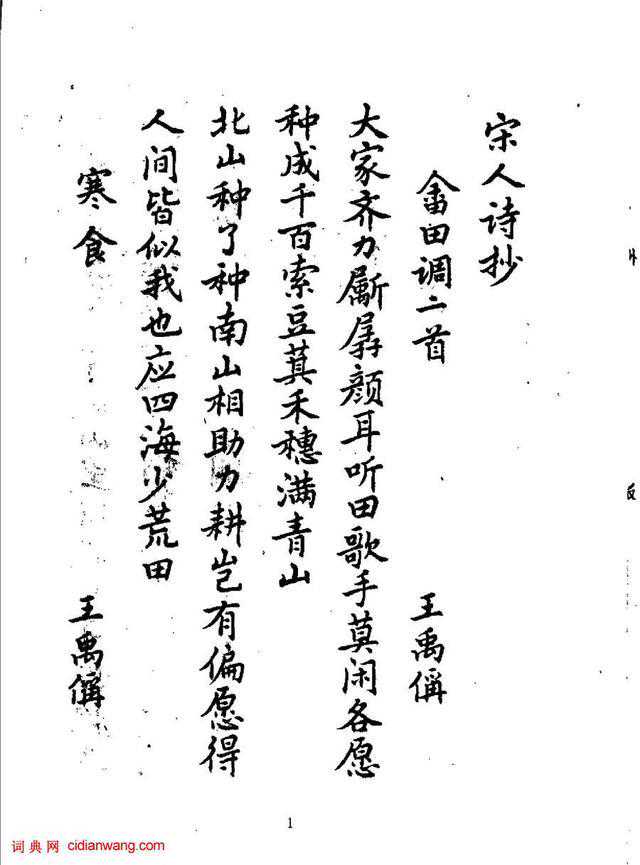 宋人诗抄
畬田调二首 王禹偁
大家齐力斸孱颜耳听田歌手莫闲各愿
种成千百索豆萁禾穗满青山
北山种了种南山相助力耕岂有偏愿得
人间皆似我也应四海少荒田
寒食 王禹偁
1
词典网 cidianwang.com